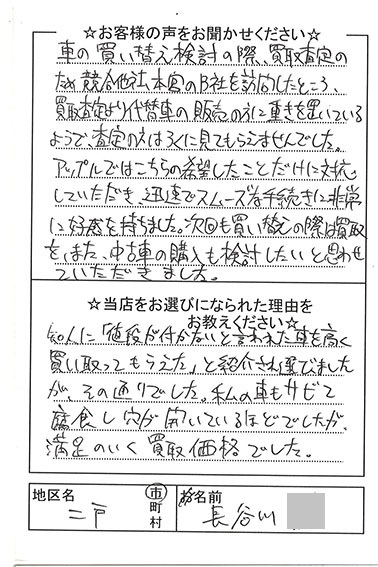 ☆お客様の声をお聞かせください☆
車の買い替え検討の際、買取査定の
ため競合他社本宮のB社を訪問したところ、
買取査定より代替車の販売の方に重きを置いている
ようで、査定の方はろくに見てもらえませんでした。
アップルではこちらの希望したことだけに対応
していただき、迅速でスムーズな手続きに非常
に好感を持ちました。次回も買い替えの際は買取
を、また、中古車の購入も検討したいと思わせ
ていただきました。
☆当店をお選びになられた理由を
お教えください☆
知人に「値段が付かないと言われた車を高く
買い取ってもらえた」と紹介され選びました
が、その通りでした。私の車もサビで
腐食し穴が開いているほどでしたが、
満足のいく買取価格でした。
地区名 二戸 市町村
お名前 長谷川